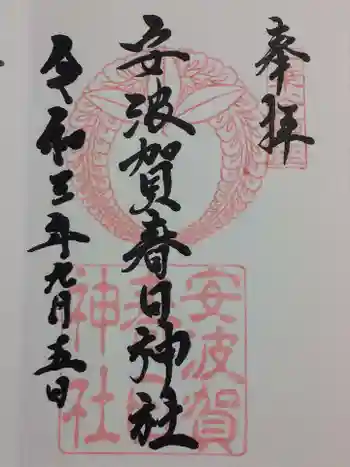 奉拝
安波賀春日神社
令和三年九月五日
安波賀
春日
神社